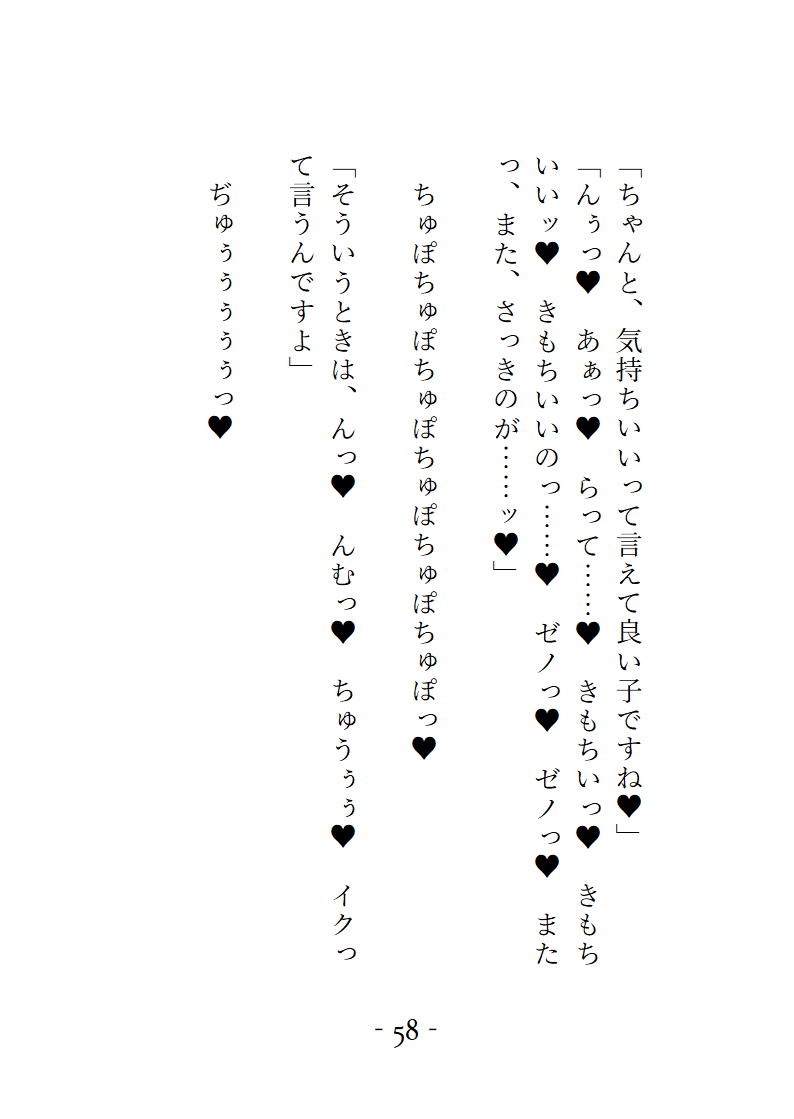 「ちゃんと、気持ちいいって言えて良い子ですね♥」
「んぅっ♥　あぁっ♥　らって……♥　きもちいっ♥　きもち
いいッ♥　きもちいいのっ……♥　ゼノっ♥　ゼノっ♥　また
っ、また、さっきのが……ッ♥」
ちゅぽちゅぽちゅぽちゅぽちゅぽちゅぽっ♥
「そういうときは、んっ♥　んむっ♥　ちゅうぅぅ♥　イクっ
て言うんですよ」
ぢゅぅぅぅぅぅっ♥
- 58 -